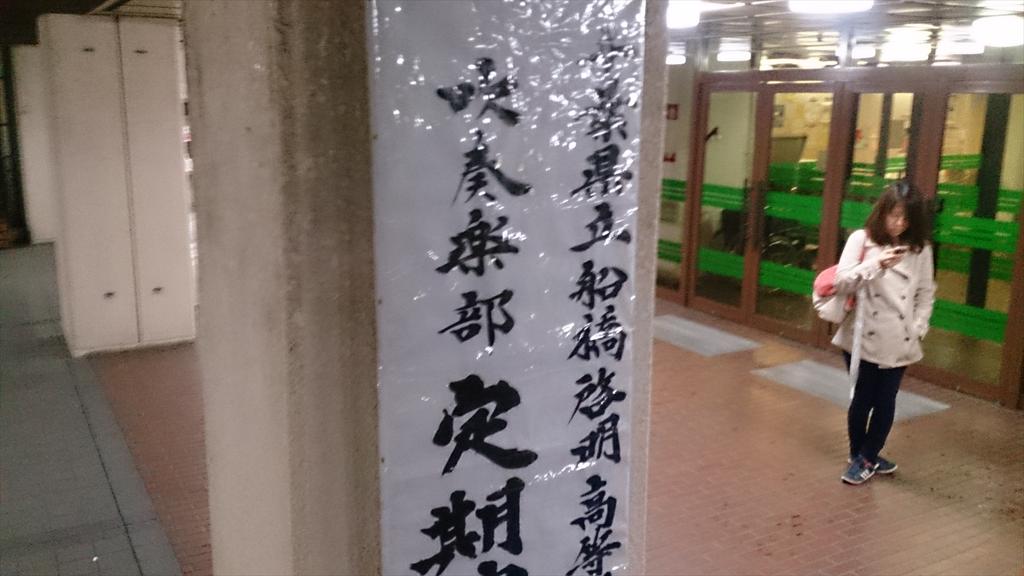 千葉県立船橋啓明高等
吹奏楽部定期